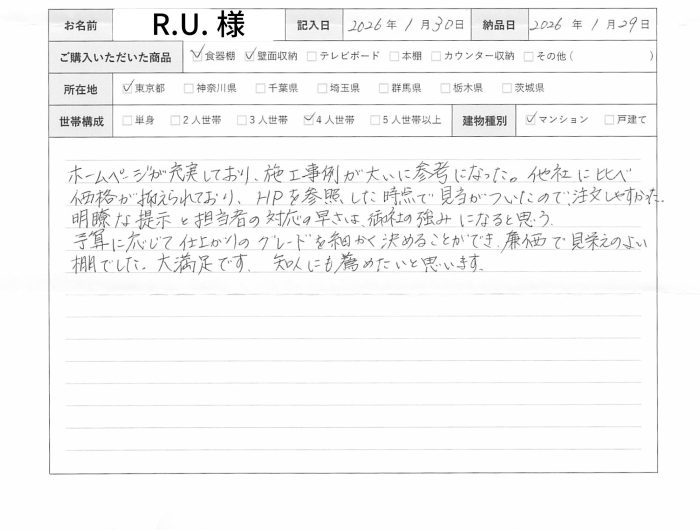 お名前 R.U. 様 記入日 2026 年 1 月 30 日 納品日 2026 年 1 月 29 日
ご購入いただいた商品 ☑食器棚 ☑壁面収納 □テレビボード □本棚 □カウンター収納 □その他( )
所在地 ☑東京都 □神奈川県 □千葉県 □埼玉県 □群馬県 □栃木県 □茨城県
世帯構成 □単身 □2人世帯 □3人世帯 ☑4人世帯 □5人世帯以上 建物種別 ☑マンション □戸建て
ホームページが充実しており、施工事例が大いに参考になった。他社に比べ
価格が抑えられており、HPを参照した時点で見当がついたので、注文しやすかった。
明瞭な提示と担当者の対応の早さは、御社の強みになると思う。
予算に応じて仕上がりのグレードを細かく決めることができ、廉価で見栄えのよい
棚でした。大満足です。知人にも薦めたいと思います。